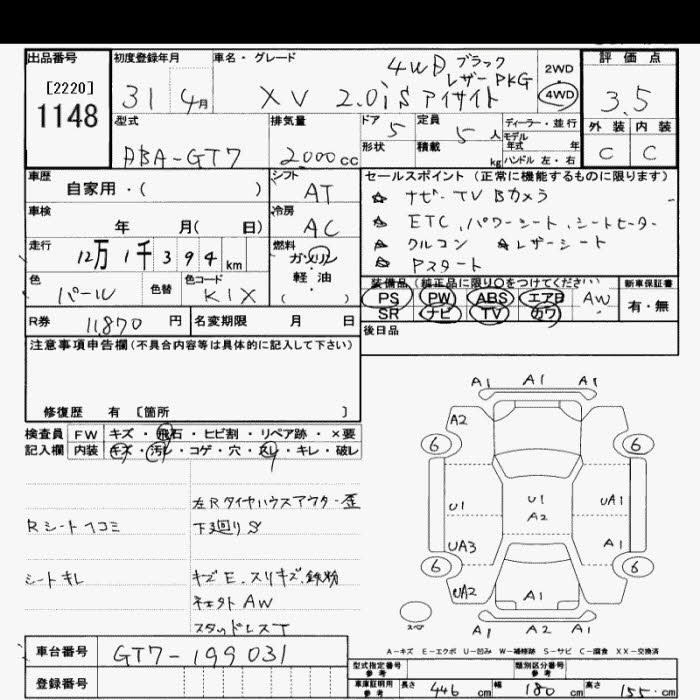 出品番号 初度登録年月 車名・グレード 評価点
[2220] 1148
31 4月
4WD ブラック
レザーPKG
XV 2.0iS アイサイト
2WD
4WD
3.5
型式 排気量 ドア 定員 ディーラー・並行 外装 内装
ABA-GT7 2,000cc 5 5人
モデル年式 年
形状 積載 kg ハンドル 左・右
C C
車歴 シフト セールスポイント (正常に機能するものに限ります)
自家用・( ) AT
☆ ナビ・TV Bカメラ
車検 冷房
年 月( 日) AC
☆ ETC、パワーシート、シートヒーター
走行 燃料
12万1千394km ガソリン
・
軽油
( )
☆ クルコン ☆レザーシート
☆ Pスタート
色 色替 色コード
パール KIX
装備品 (純正品に限り○をつけてください) 新車保証書
PS PW ABS エアB AW 有・無
SR ナビ TV カワ
R券 11870円 名変期限 月 日
後日品
注意事項申告欄(不具合内容等は具体的に記入して下さい)
修復歴 有 〔箇所 〕
検査員 FW キズ・飛石・ヒビ割・リペア跡・×要
記入欄 内装 キズ・汚レ・コゲ・穴・スレ・キレ・破レ
A1 A1 A1
A2
6 6
左Rタイヤハウスアウター歪
U1 U1 UA1
A2
Rシートヘコミ 下廻りS
UA3 A1
6 6
シートキレ キズE、スリキズ、鉄粉
UA2 A1
キズ大AW
スペア
スタッドレスT
A1 A2 A1
A-キズ E-エクボ U-凹み W-補修跡 S-サビ C-腐食 XX-交換済
車台番号 GT7-199031
型式指定番号 参考 類別区分番号 参考
登録番号
車庫証明用 参考 長さ 446cm 幅 180cm 高さ 155cm